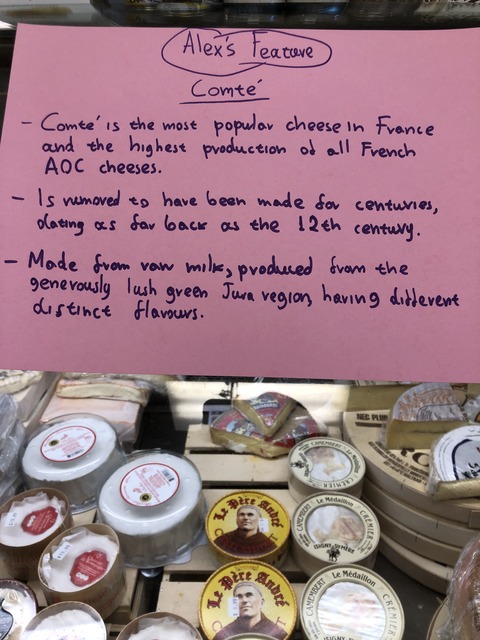 Alex's Feature
Comté
- Comté is the most popular cheese in France
and the highest production of all French
AOC cheeses.
- Is rumored to have been made for centuries,
dating as far back as the 12th century.
- Made from raw milk, produced from the
generously lush green Jura region, having different
distinct flavours.
NEC PLUS
CAMEMBERT Le Médaillon CRÉMIER
Le Père André
CAMEMBERT Le Médaillon CRÉMIER
ISIGNY STE MÈRE
Le Père André
CAMEMBERT Le Médaillon CRÉMIER
ISIGNY